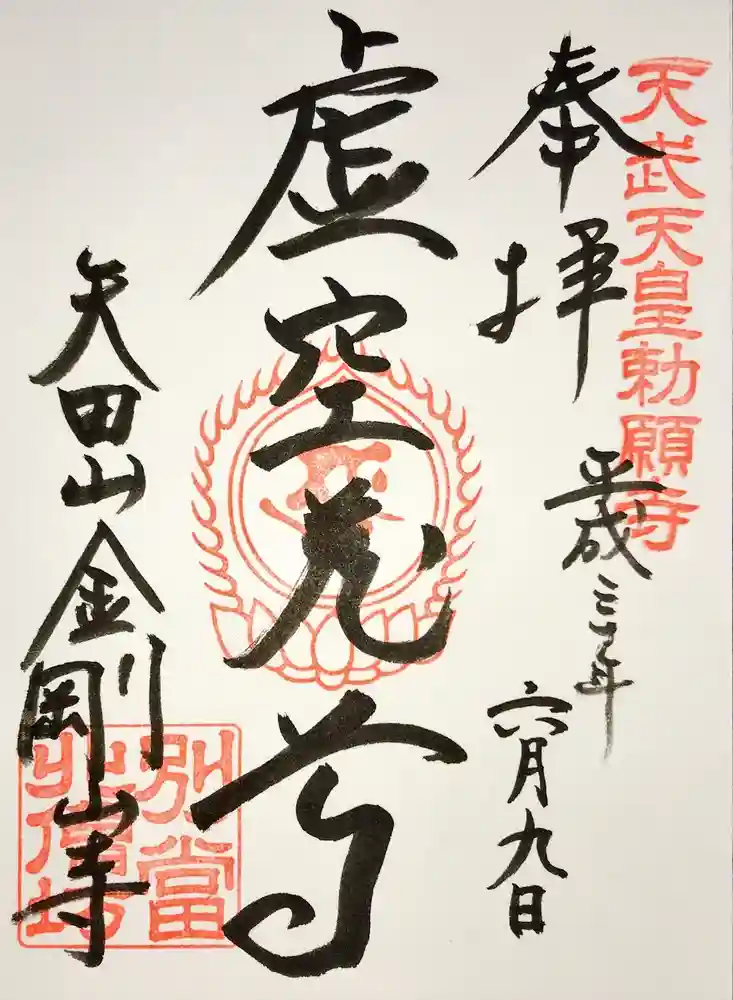 天武天皇勅願寺
奉拝
平成三十年
六月九日
虚空蔵尊
矢田山金剛山寺
別當
北僧坊